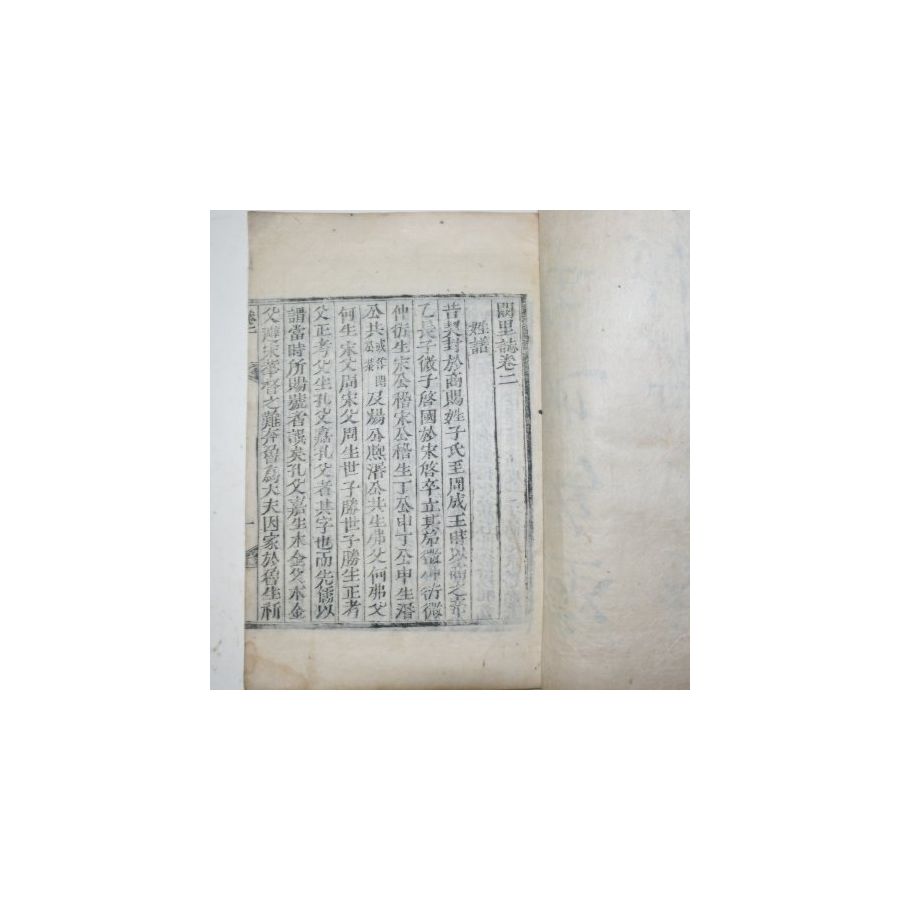 闕里誌卷二
姓譜
昔契封於商賜姓子氏至周成王時以帝乙
乙長子微子啓國於宋啓卒立其弟微仲衍微
仲衍生宋公稽宋公稽生丁公申丁公申生湣
公共及煬公熙湣公共生弗父何弗父
何生宋父周宋父周生世子勝世子勝生正考
父正考父生孔父嘉孔父者其字也而先儒以
謂當時所賜號者誤矣孔父嘉生木金父木金
父避宋華督之難奔魯為大夫因家於魯生祈
卷二